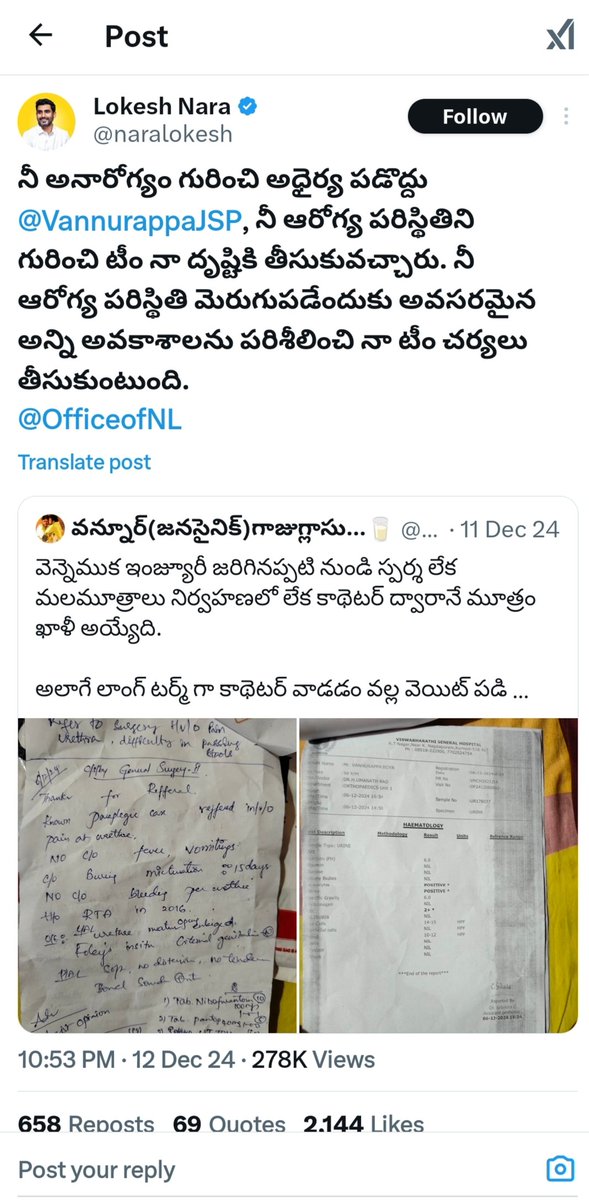 Post
Lokesh Nara
Follow
@naralokesh
నీ అనారోగ్యం గురించి అధైర్య పడొద్దు
@VannurappaJSP, నీ ఆరోగ్య పరిస్థితిని
గురించి టీం నా దృష్టికి తీసుకువచ్చారు. నీ
ఆరోగ్య పరిస్థితి మెరుగుపడేందుకు అవసరమైన
అన్ని అవకాశాలను పరిశీలించి నా టీం చర్యలు
తీసుకుంటుంది.
@OfficeofNL
Translate post
వన్నూర్(జనసైనిక్)గాజుగ్లాసు... 🥛 @... · 11 Dec 24
వెన్నెముక ఇంజ్యూరీ జరిగినప్పటి నుండి స్పర్శ లేక
మలమూత్రాలు నిర్వహణలో లేక కాథెటర్ ద్వారానే మూత్రం
ఖాళీ అయ్యేది.
అలాగే లాంగ్ టర్మ్ గా కాథెటర్ వాడడం వల్ల వెయిట్ పడి ...
Refer to Surgery I/V/O Pain
urethra, difficulty in passing
stools
General Surgery
Thanks for Refferal
known paraplegic case reffered
pain at urethra.
NO c/o fever, vomitings
c/o Burning micturation 15 days
NO c/o bleeding per urethra
H/o RTA in 2016
no distension, no tender
opinion
VISWABHARATHI GENERAL HOSPITAL
ORTHOPAEDICS UNIT 1
HAEMATOLOGY
Methodology Result Units Refrance Range
6.0
NIL
NIL
NIL
POSITIVE *
POSITIVE *
6.0
NIL
2+ *
NIL
14-15 HPF
10-12 HPF
NIL
NIL
NIL
NIL
***End of the report***
10:53 PM · 12 Dec 24 · 278K Views
658 Reposts 69 Quotes 2,144 Likes
Post your reply